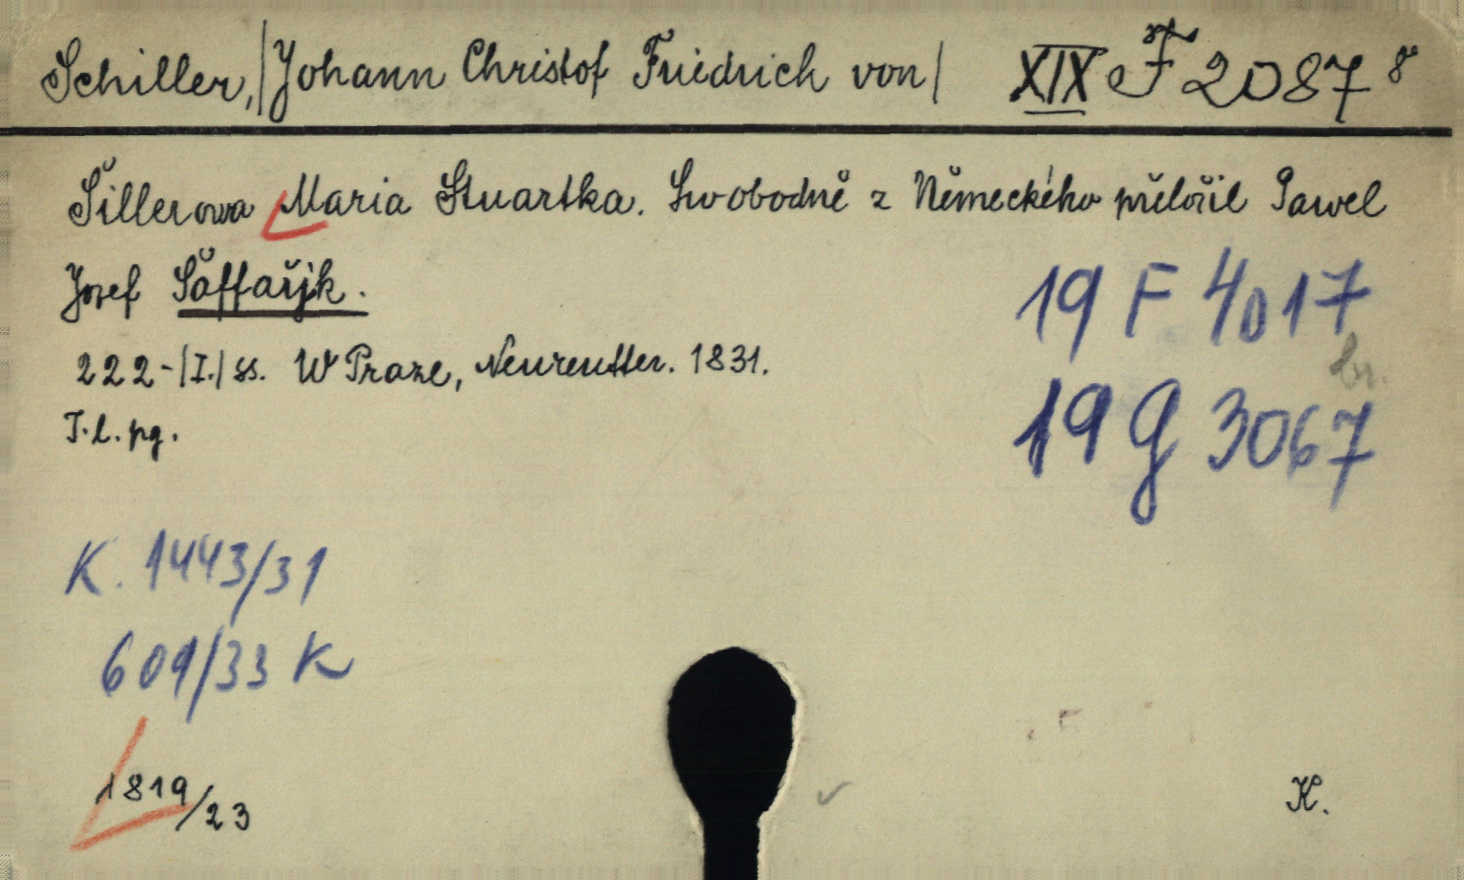 Schiller, /Johann Christof Friedrich von/ XIX F 2087 8
Šillerowa Maria Stuartka. Swobodně z Německého přeložil Pawel
Jozef Šaffařjk.
19 F 4017
222-/I./ ss. W Praze, Neureutter. 1831.
T.l.pg.
19 G 3067
K. 1443/31
609/33 K
1819/23
K.